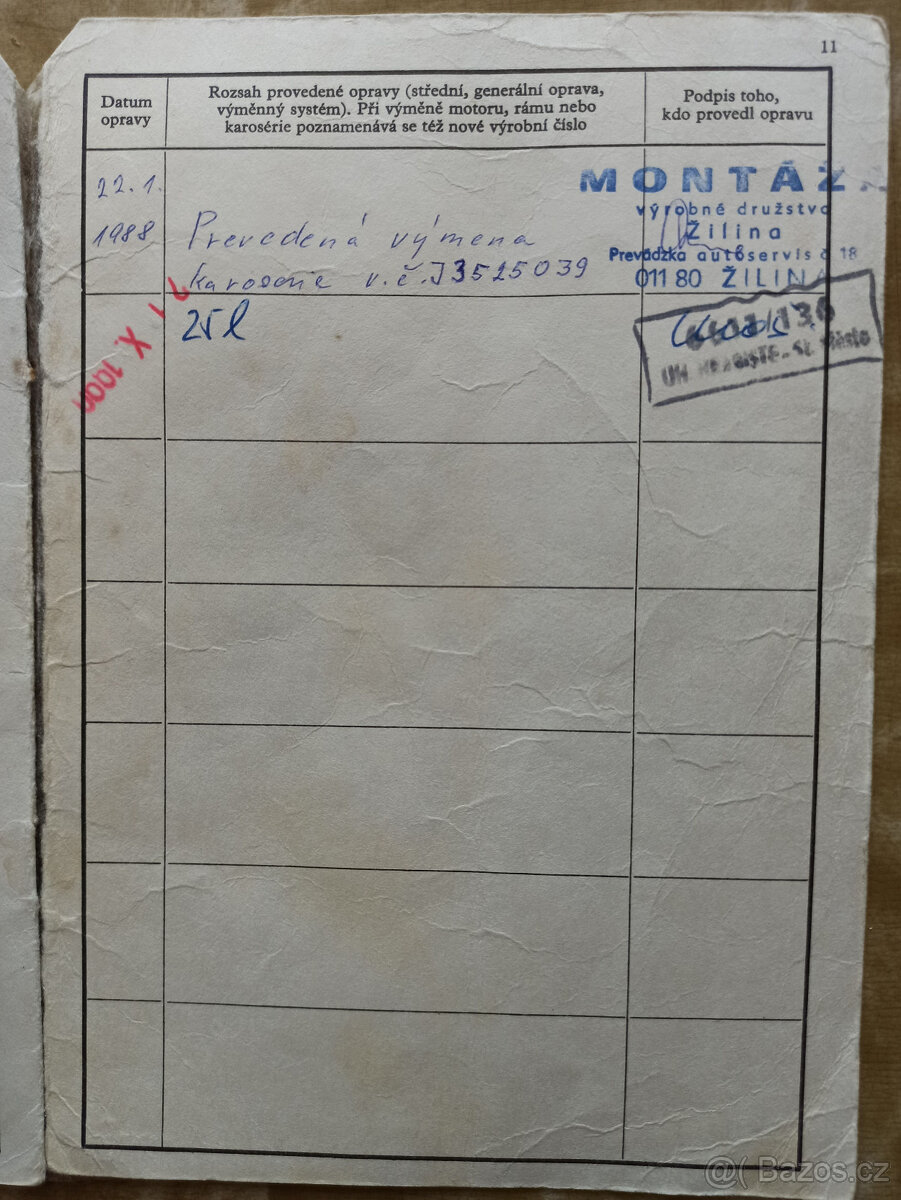 11
Datum
opravy
Rozsah provedené opravy (střední, generální oprava,
výměnný systém). Při výměně motoru, rámu nebo
karosérie poznamenává se též nové výrobní číslo
Podpis toho,
kdo provedl opravu
22.1.
1988
Prevedená výmena
karoserie v.č. J3525039
MONTÁŽ
výrobné družstvo
Žilina
Prevádzka autoservis č 18
011 80 ŽILINA
25 l
X.
130
@( Bazos.cz